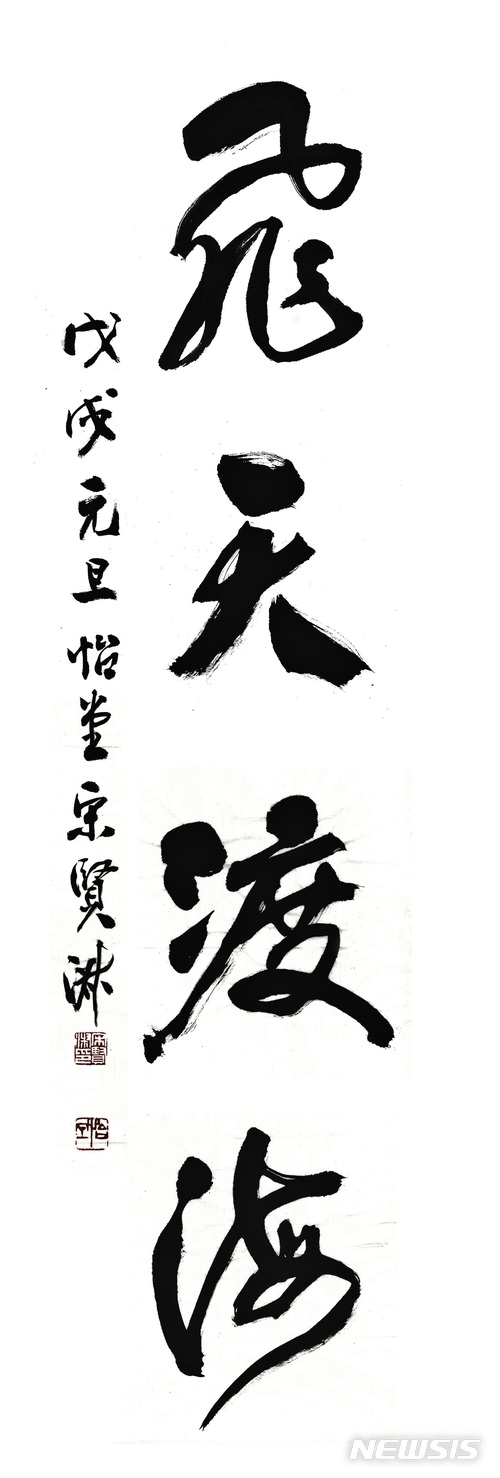 飛天渡海
戊戌元旦 怡堂 宋賢淑
NEWSIS